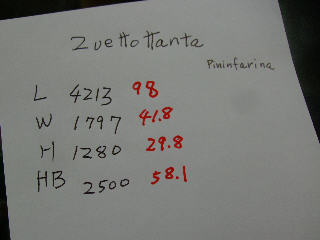 Zuettottanta
Pininfarina
L 4213 98
W 1797 41.8
H 1280 29.8
HB 2500 58.1